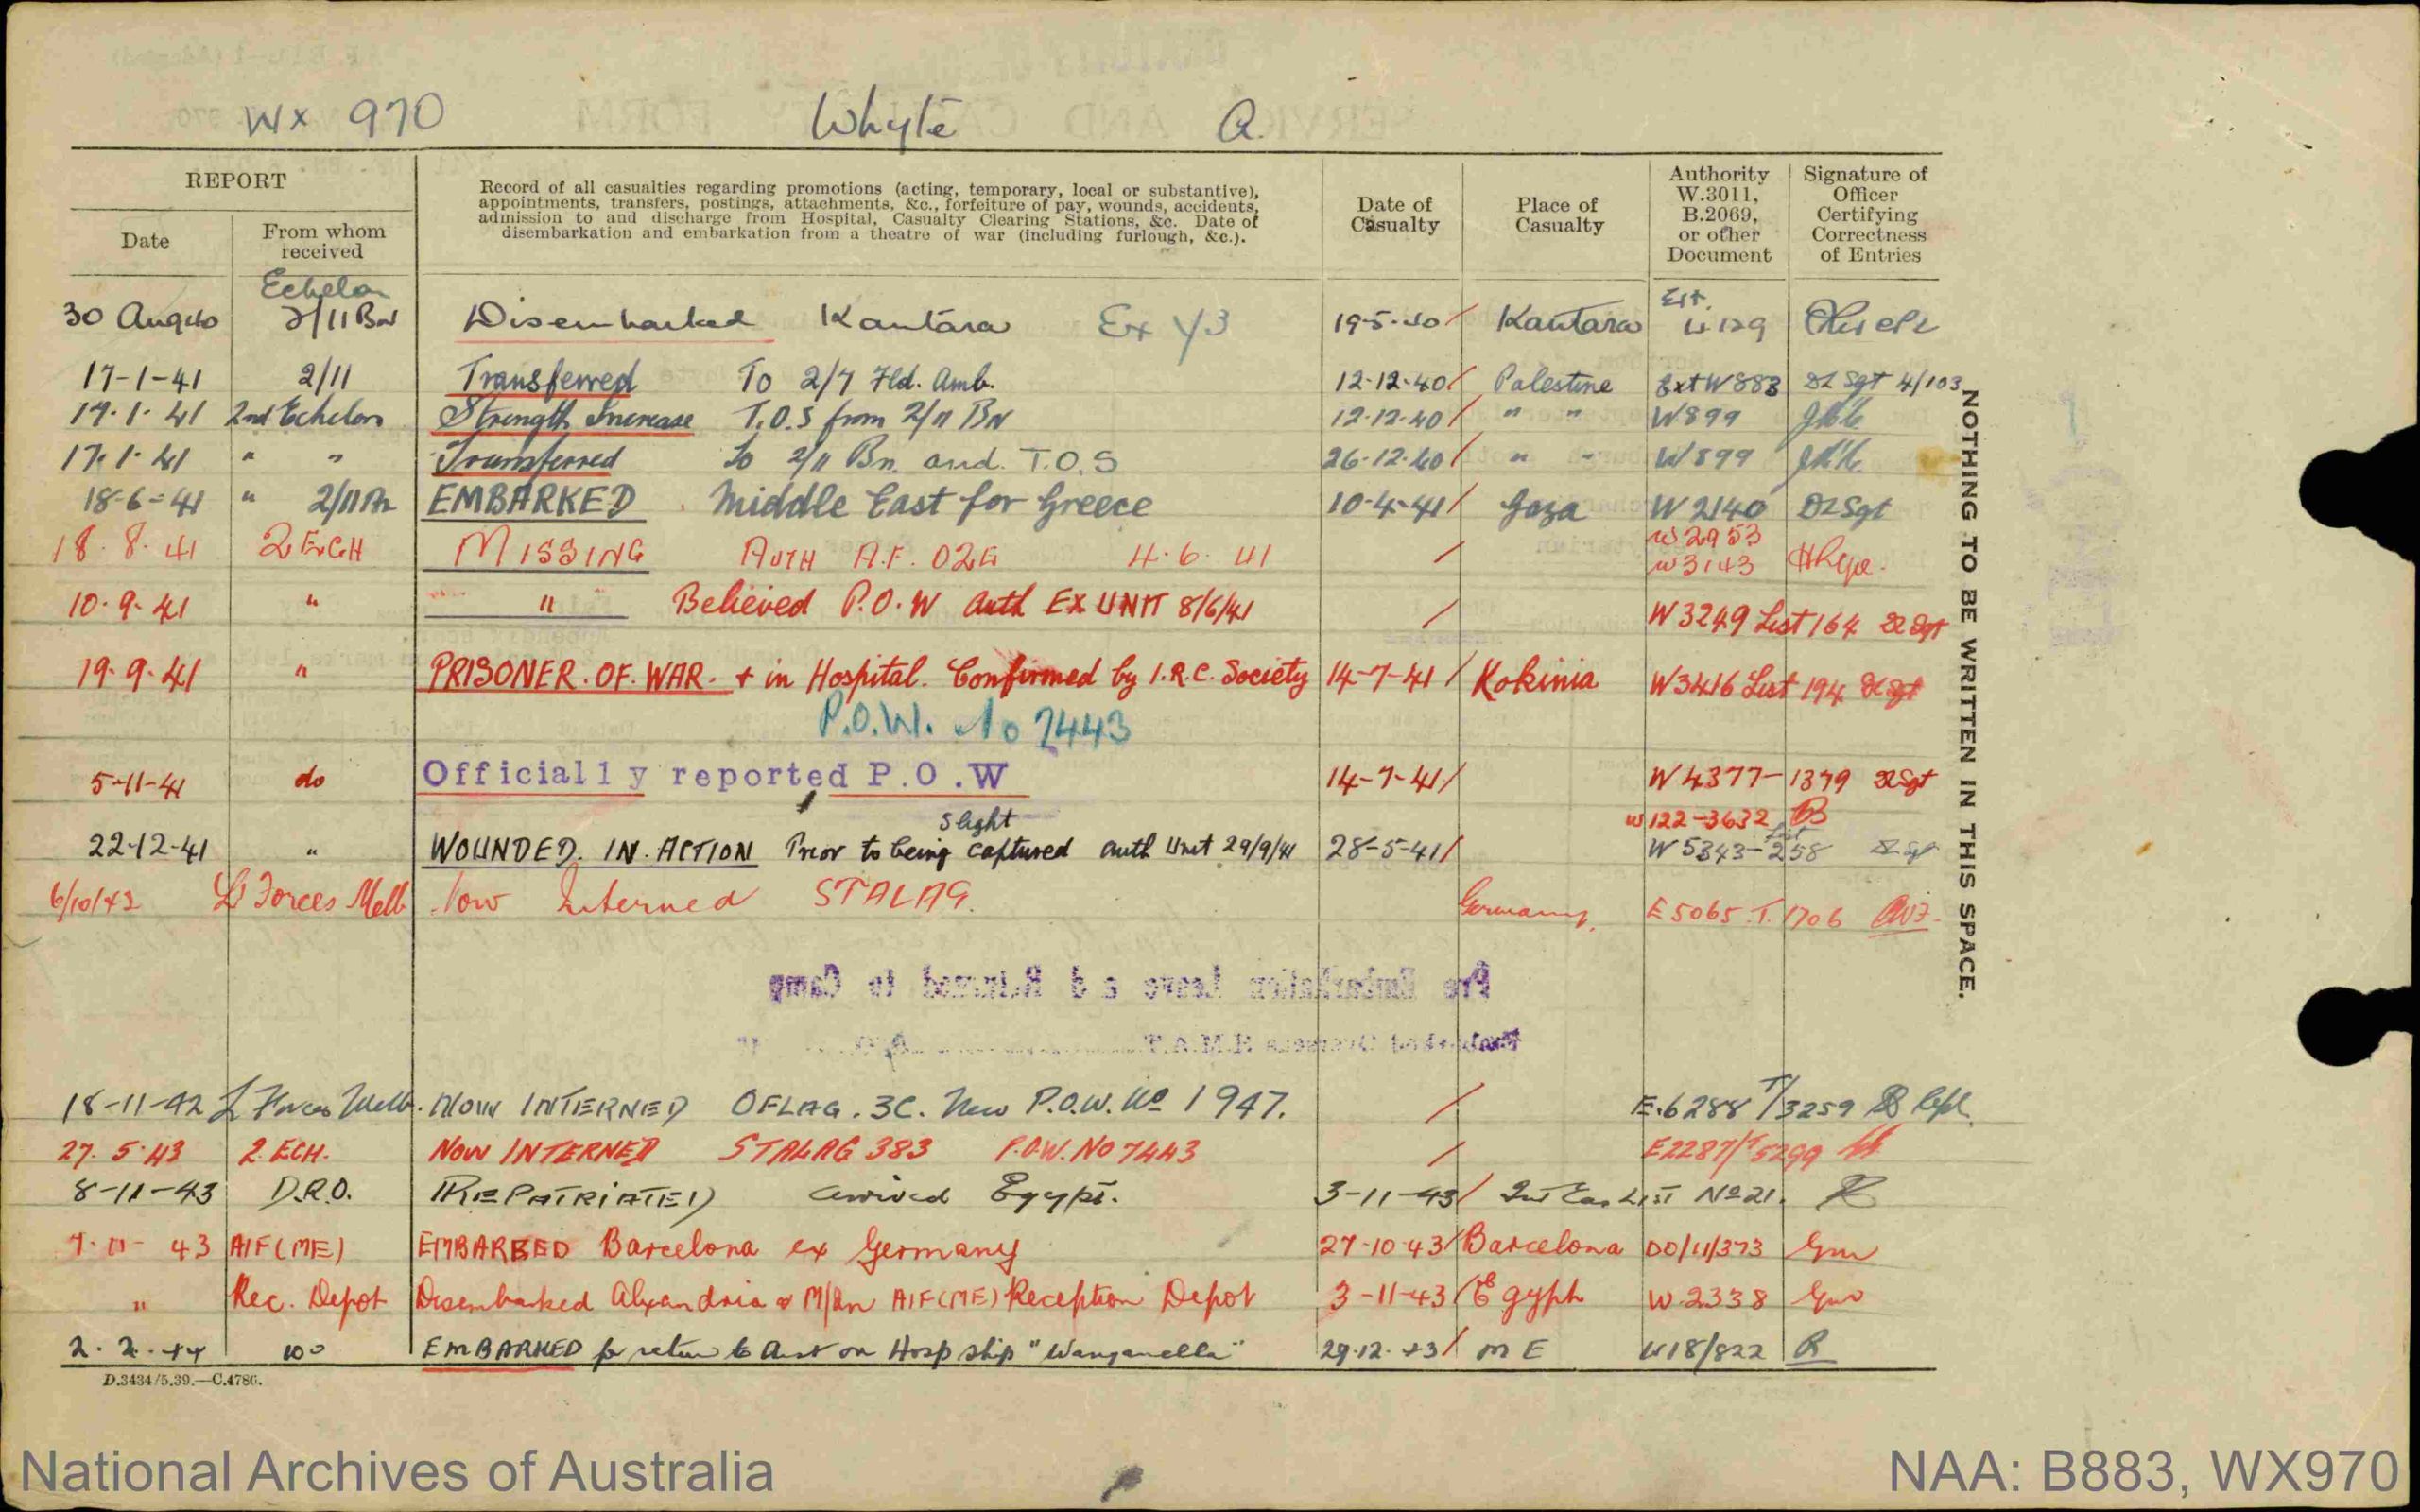 WX 970 Whyte A.
REPORT
Date
From whom received
Record of all casualties regarding promotions (acting, temporary, local or substantive),
appointments, transfers, postings, attachments, &c., forfeiture of pay, wounds, accidents,
admission to and discharge from Hospital, Casualty Clearing Stations, &c. Date of
disembarkation and embarkation from a theatre of war (including furlough, &c.).
Date of Casualty
Place of Casualty
Authority W.3011, B.2069, or other Document
Signature of Officer Certifying Correctness of Entries
Echelon
30 Aug 40 2/11 Bn Disembarked Kantara Ex Y3 19-5-40 Kantara
17-1-41 2/11 Transferred To 2/7 Fld. Amb. 12-12-40 Palestine Ext W883 Sgt 4/103
17.1.41 2nd Echelon Strength Increase T.O.S from 2/11 Bn 12-12-40 " " W899
17.1.41 " " Transferred To 2/11 Bn. and. T.O.S 26-12-40 " " W899
18-6-41 " 2/11 Bn EMBARKED Middle East for Greece 10-4-41 Gaza W2140 Sgt
W2953
18.8.41 2 ECH MISSING AUTH A.F. 024 4.6.41 W3143
10.9.41 " " Believed P.O.W auth EX UNIT 8/6/41 W3249 List 164 Sgt
19.9.41 " PRISONER.OF.WAR. + in Hospital. Confirmed by I.R.C. Society 14-7-41 Kokinia W3416 List 194 Sgt
P.O.W. No 7443
5-11-41 do Officially reported P.O.W 14-7-41 W4377-1379 Sgt
Slight W122-3632
22-12-41 " WOUNDED. IN. ACTION Prior to being captured auth Unit 29/9/41 28-5-41 W5343-List 258
6/10/42 L Forces Melb Now Interned STALAG. Germany. E5065 T.1706
18-11-42 L Forces Melb. NOW INTERNED OFLAG. 3C. New P.O.W. No 1947. E.6288 T/3259
27.5.43 2.ECH. NOW INTERNED STALAG 383 P.O.W. NO 7443 E2287/T5299
8-11-43 D.R.O. REPATRIATED arrived Egypt. 3-11-43 Cas LIST No 21.
7-11-43 AIF(ME) EMBARKED Barcelona ex Germany 27-10-43 Barcelona DO/11/373
" Rec. Depot Disembarked Alexandria & M/In AIF(ME) Reception Depot 3-11-43 Egypt W.2338
2.2.44 EMBARKED for return to Aust on Hosp ship "Wanganella" 29.12.43 ME W18/822
D.3434/5.39.—C.4786.
NOTHING TO BE WRITTEN IN THIS SPACE.
National Archives of Australia
NAA: B883, WX970